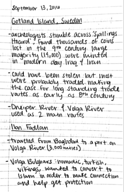 September 15, 2010
Gotland Island, Sweden
- archeologists stumble across Spillings
Hoard / found thousands of coins
lost in the 9th century large
majority (14,000) were minted
in modern day Iraq / Iran
- could have been stolen but most
were probably traded making
the case for long standing trade
routes as early as 8th century
- Dneiper River & Volga River
used as 2 main routes
Ibn Fadlan
- traveled from Baghdad to a port on
Volga River (3,000 miles)
- Volga Bulgars (nomadic, Turkish,
vikings) wanted to convert to
Islam in order to make connection
and help get protection